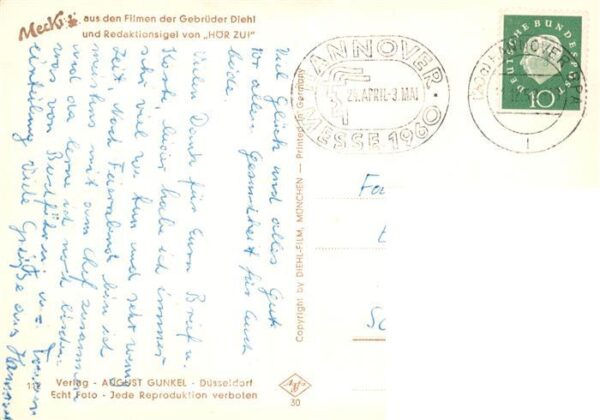 Mecki
aus den Filmen der Gebrüder Diehl
und Redaktionsigel von „HÖR ZU!"
Viel Glück und alles Gute
vor allem Gesundheit für Euch
beide.
Vielen Dank für Euren Brief u.
Karte, leider habe ich immer
sehr viel zu tun und sehr wenig
Zeit. Nach Feierabend bin ich
meistens mit dem Chef zusammen
und da lerne ich noch bischen
was von Buchführung u.
einteilung Viele Grüße aus Hannover
HANNOVER
24. APRIL-3. MAI
MESSE 1960
HANNOVER
DEUTSCHE BUNDESPOST
10
Copyright by DIEHL-FILM, MÜNCHEN — Printed in Germany
Verlag - AUGUST GUNKEL - Düsseldorf
Echt Foto - Jede Reproduktion verboten
Agfa
30